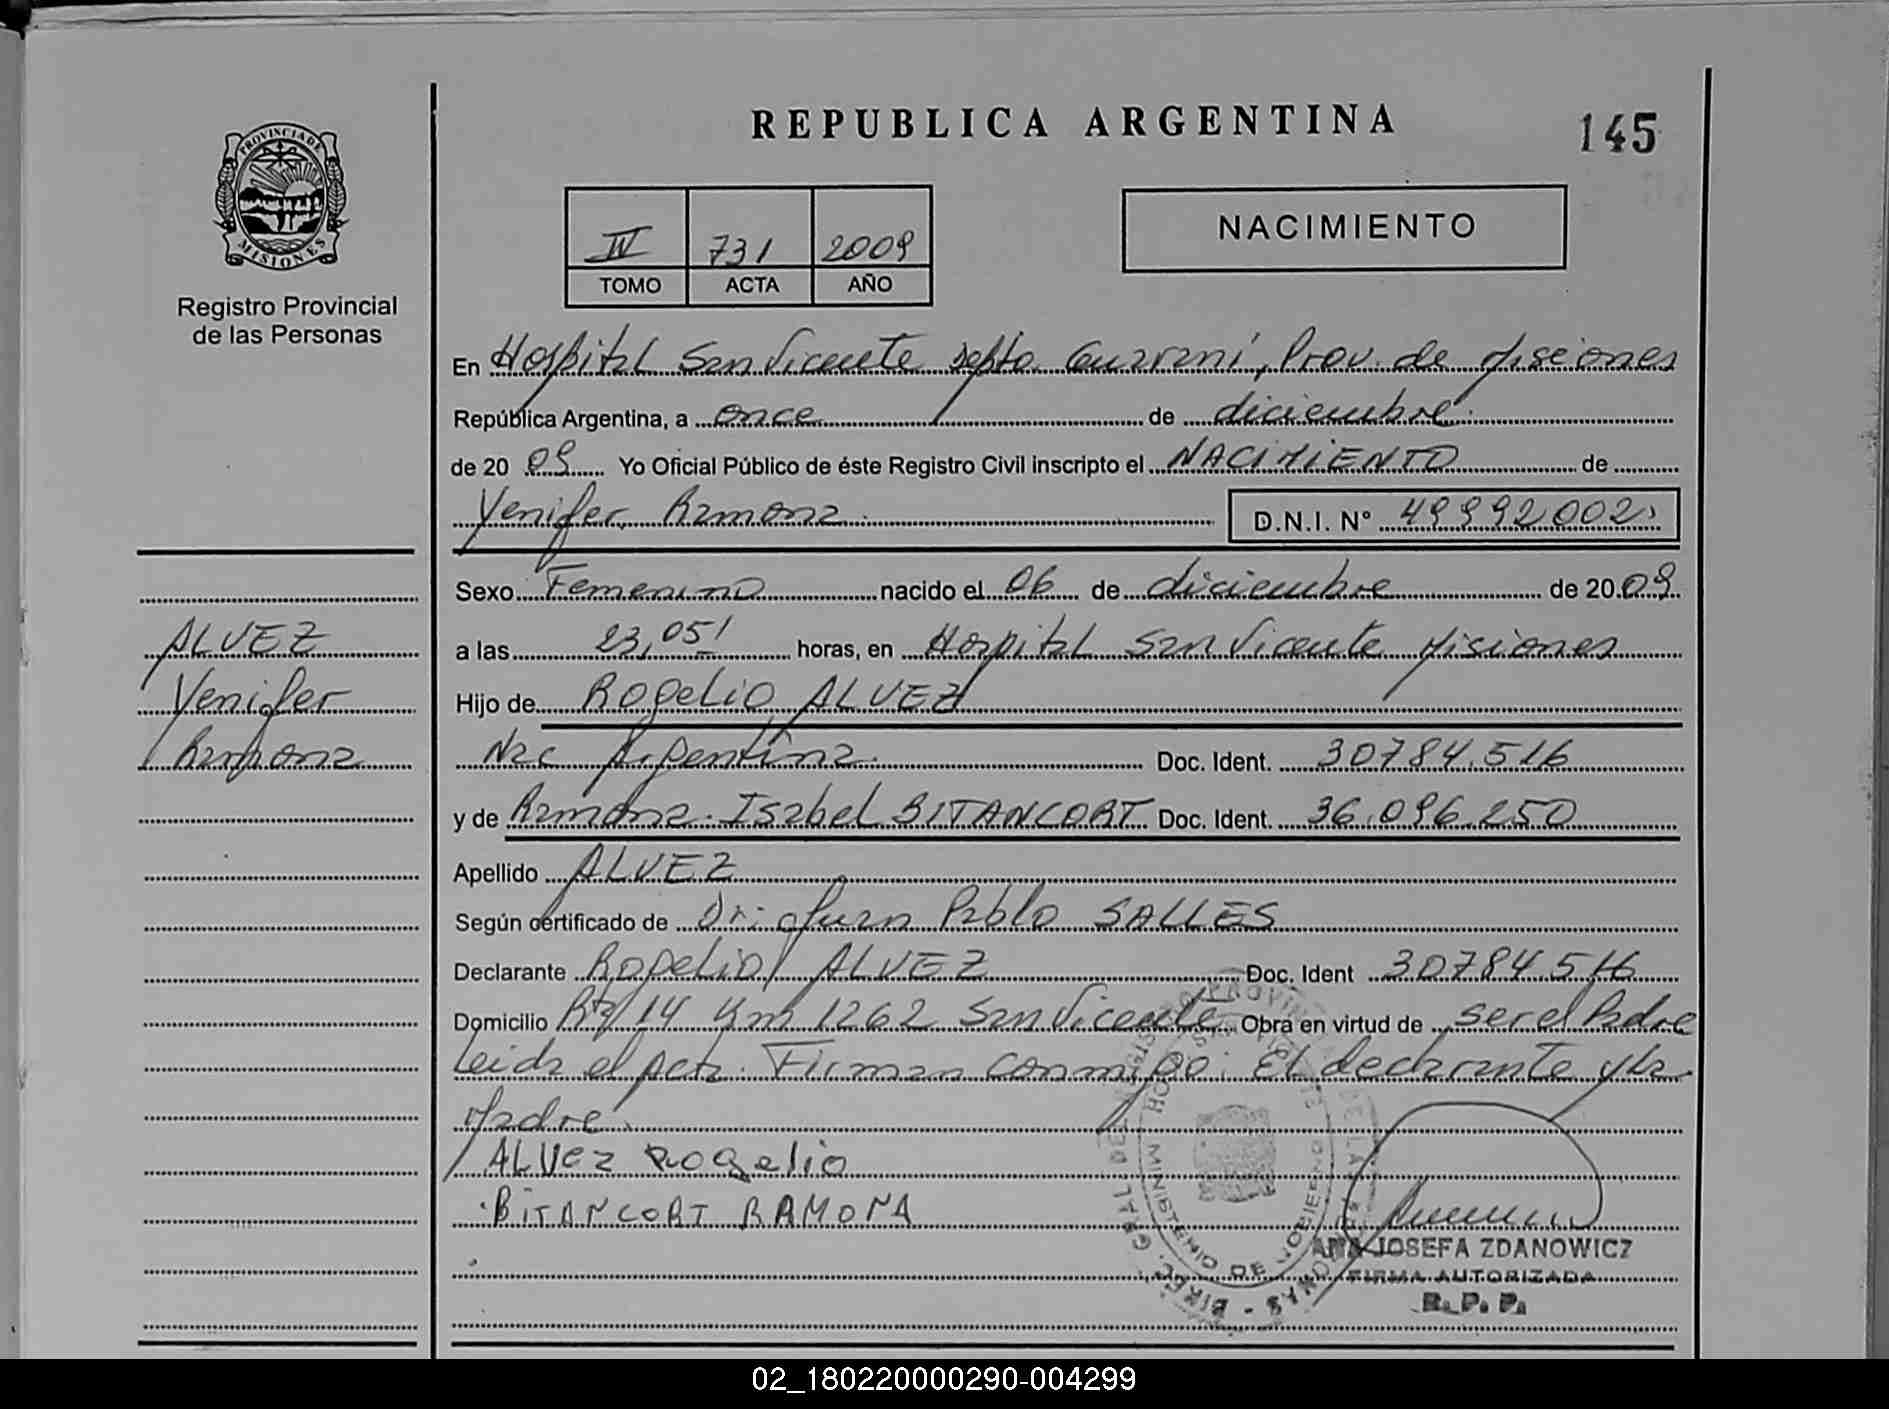 REPUBLICA ARGENTINA
145
PROVINCIA DE
MISIONES
Registro Provincial
de las Personas
IV 731 2009
TOMO ACTA AÑO
NACIMIENTO
En Hospital San Vicente Depto. Guaraní, Prov. de Misiones
República Argentina, a once de diciembre
de 20 09 Yo Oficial Público de éste Registro Civil inscripto el NACIMIENTO de
Yenifer Ramona D.N.I. Nº 49992002
Sexo Femenino nacido el 06 de diciembre de 20 09
a las 23,05' horas, en Hospital San Vicente Misiones
Hijo de Rogelio ALVEZ
Nac Argentina. Doc. Ident. 30784.516
y de Ramona Isabel BITANCORT Doc. Ident. 36.096.250
Apellido ALVEZ
Según certificado de Dr: Juan Pablo SALLES
Declarante Rogelio ALVEZ Doc. Ident 30784516
Domicilio Rta 14 Km 1262 San Vicente Obra en virtud de ser el Padre
Leida el Acta. Firman conmigo: El declarante y la
Madre.
ALVEZ Rogelio
BITANCORT RAMONA
ALVEZ
Yenifer
Ramona
MINISTERIO DE GOBIERNO
ANA JOSEFA ZDANOWICZ
FIRMA AUTORIZADA
R. P. P.
02_180220000290-004299